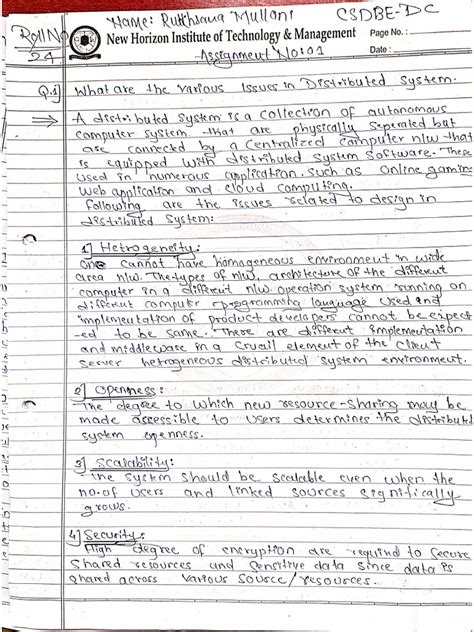 Name: Rukhsana Mullani CSDBE-DC
Roll No
24
New Horizon Institute of Technology & Management
Page No. :
Date :
Assignment No:01
Q.1] What are the various Issues in Distributed System.
⇒ A distributed system is a collection of autonomous
computer system that are physically seperated but
are connected by a centralized computer n/w that
is equipped with distributed system software. These
used in numerous application. such as Online gaming
Web application and cloud computing.
Following are the issues related to design in
distributed system:
1] Hetrogeneity:
One cannot have homogeneous environment in wide
area n/w. The types of n/w, architecture of the different
computer in a different n/w operation system running on
different computer programming language used and
implementation of product developers cannot be expect
-ed to be same. There are different implementation
and middleware in a cruail element of the client
server hetrogeneous distributed system environment.
2] Openness:
The degree to which new resource-sharing may be
made accessible to users determines the distributed
system openness.
3] Scalability:
The system should be scalable even when the
no.of users and linked sources significally
grows.
4] Security:
High degree of encryption are required to secure
shared resources and sensitive data since data is
shared across various source/resources.